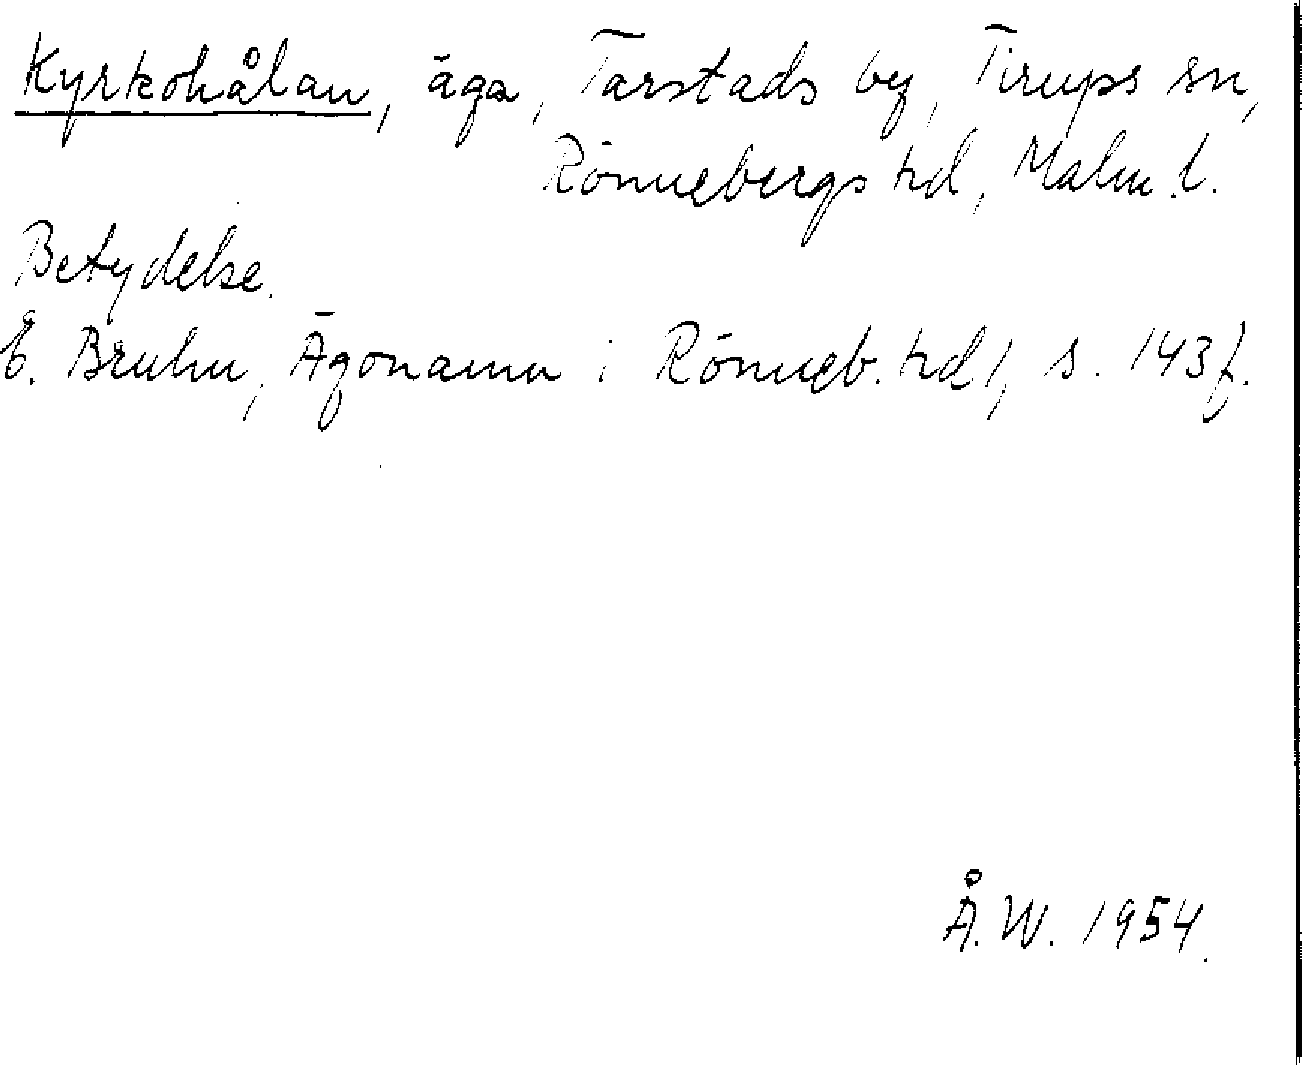 Kyrkohålan, äga, Tarstads by, Tirups sn,
Rönnebergs hd, Malm. l.
Betydelse.
E. Bruhn, Ägonamn i Rönneb. hd 1, s. 143 f.
Å. W. 1954.